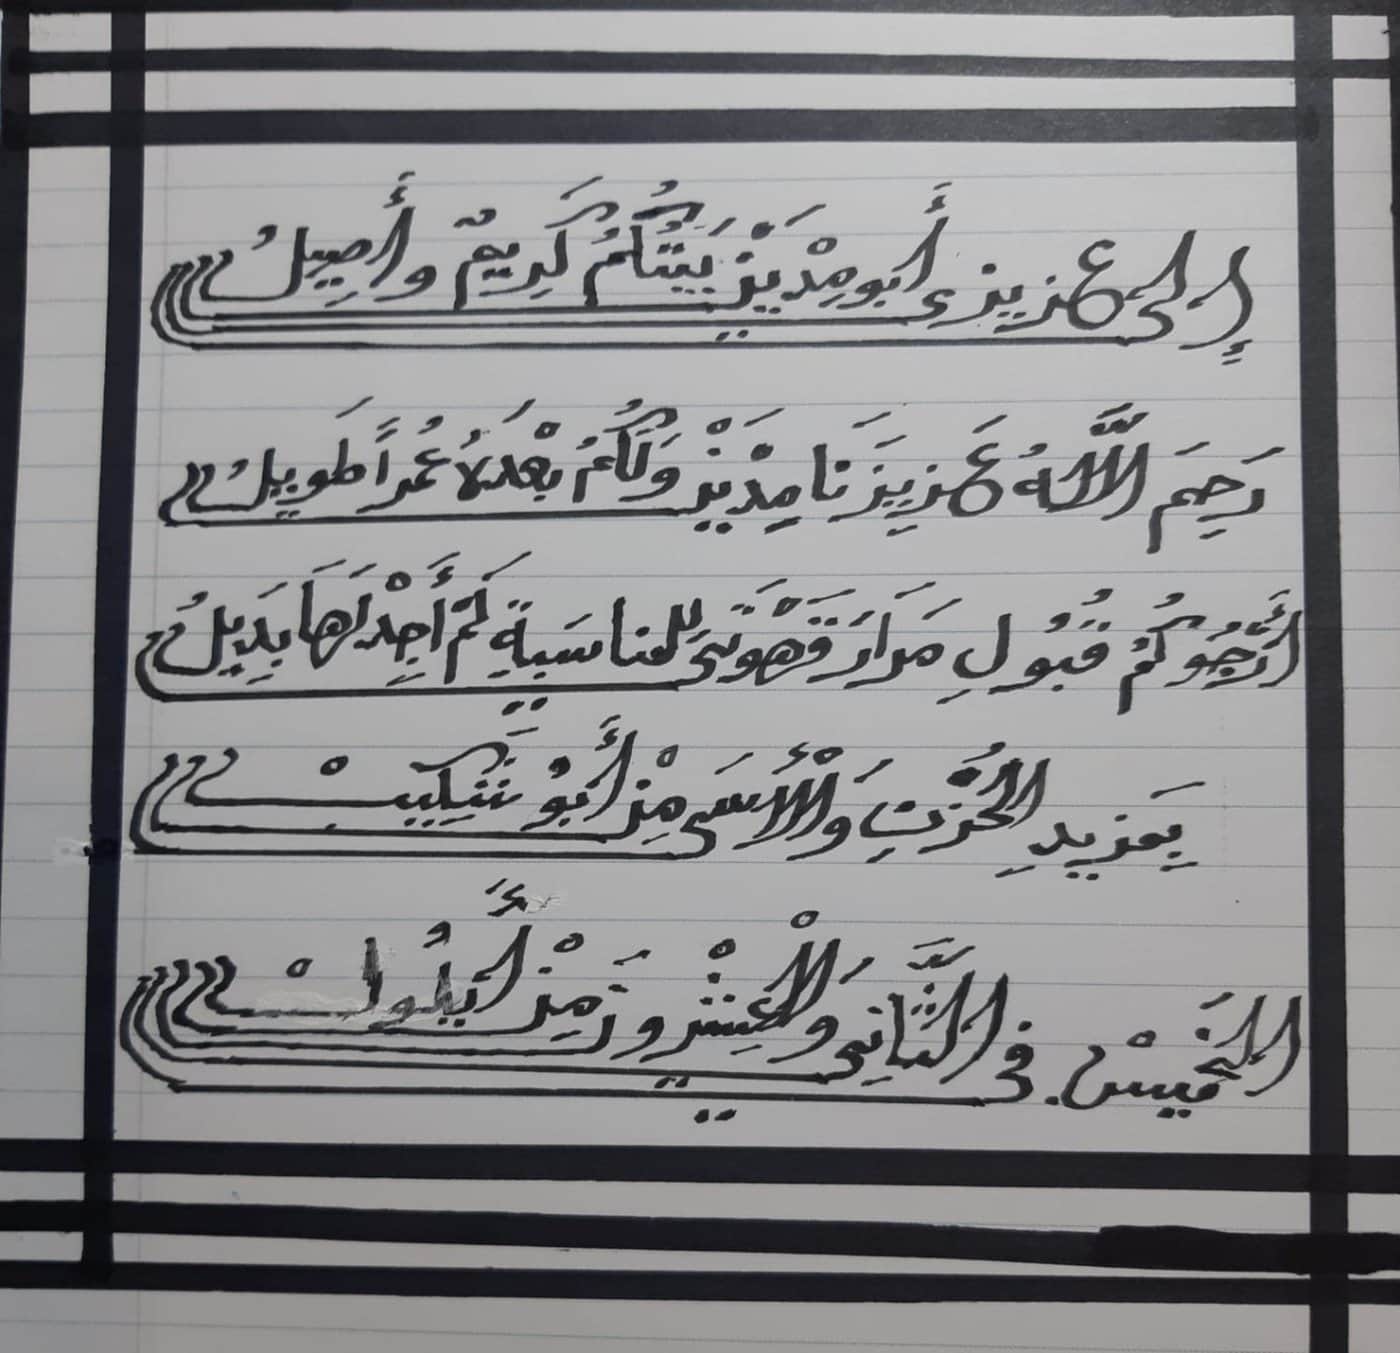 إلى عزيزي أبو مِدْيَيْن بَيْتُكُمُ كَرِيمٌ وأَصِيلُ
رَحِمَ اللَّهُ عَزِيزَنَا مِدْيَيْن وَلَكُمُ بَعْدَهُ عُمُراً طَوِيلُ
أَرْجُوكُمُ قُبُولِ مَرَارَةَ قَهْوَتِي لِلمُنَاسَبَةٍ لَمْ أَجِدْ لَهَا بَدِيلُ
بِمَزِيدِ الحُزْنِ وَالْأَسَى مِنْ أَبُو شَكِيبْ
الخَمِيسْ. في الثَّانِي وَالْعِشْرُونَ مِنْ أَيْلُولْ